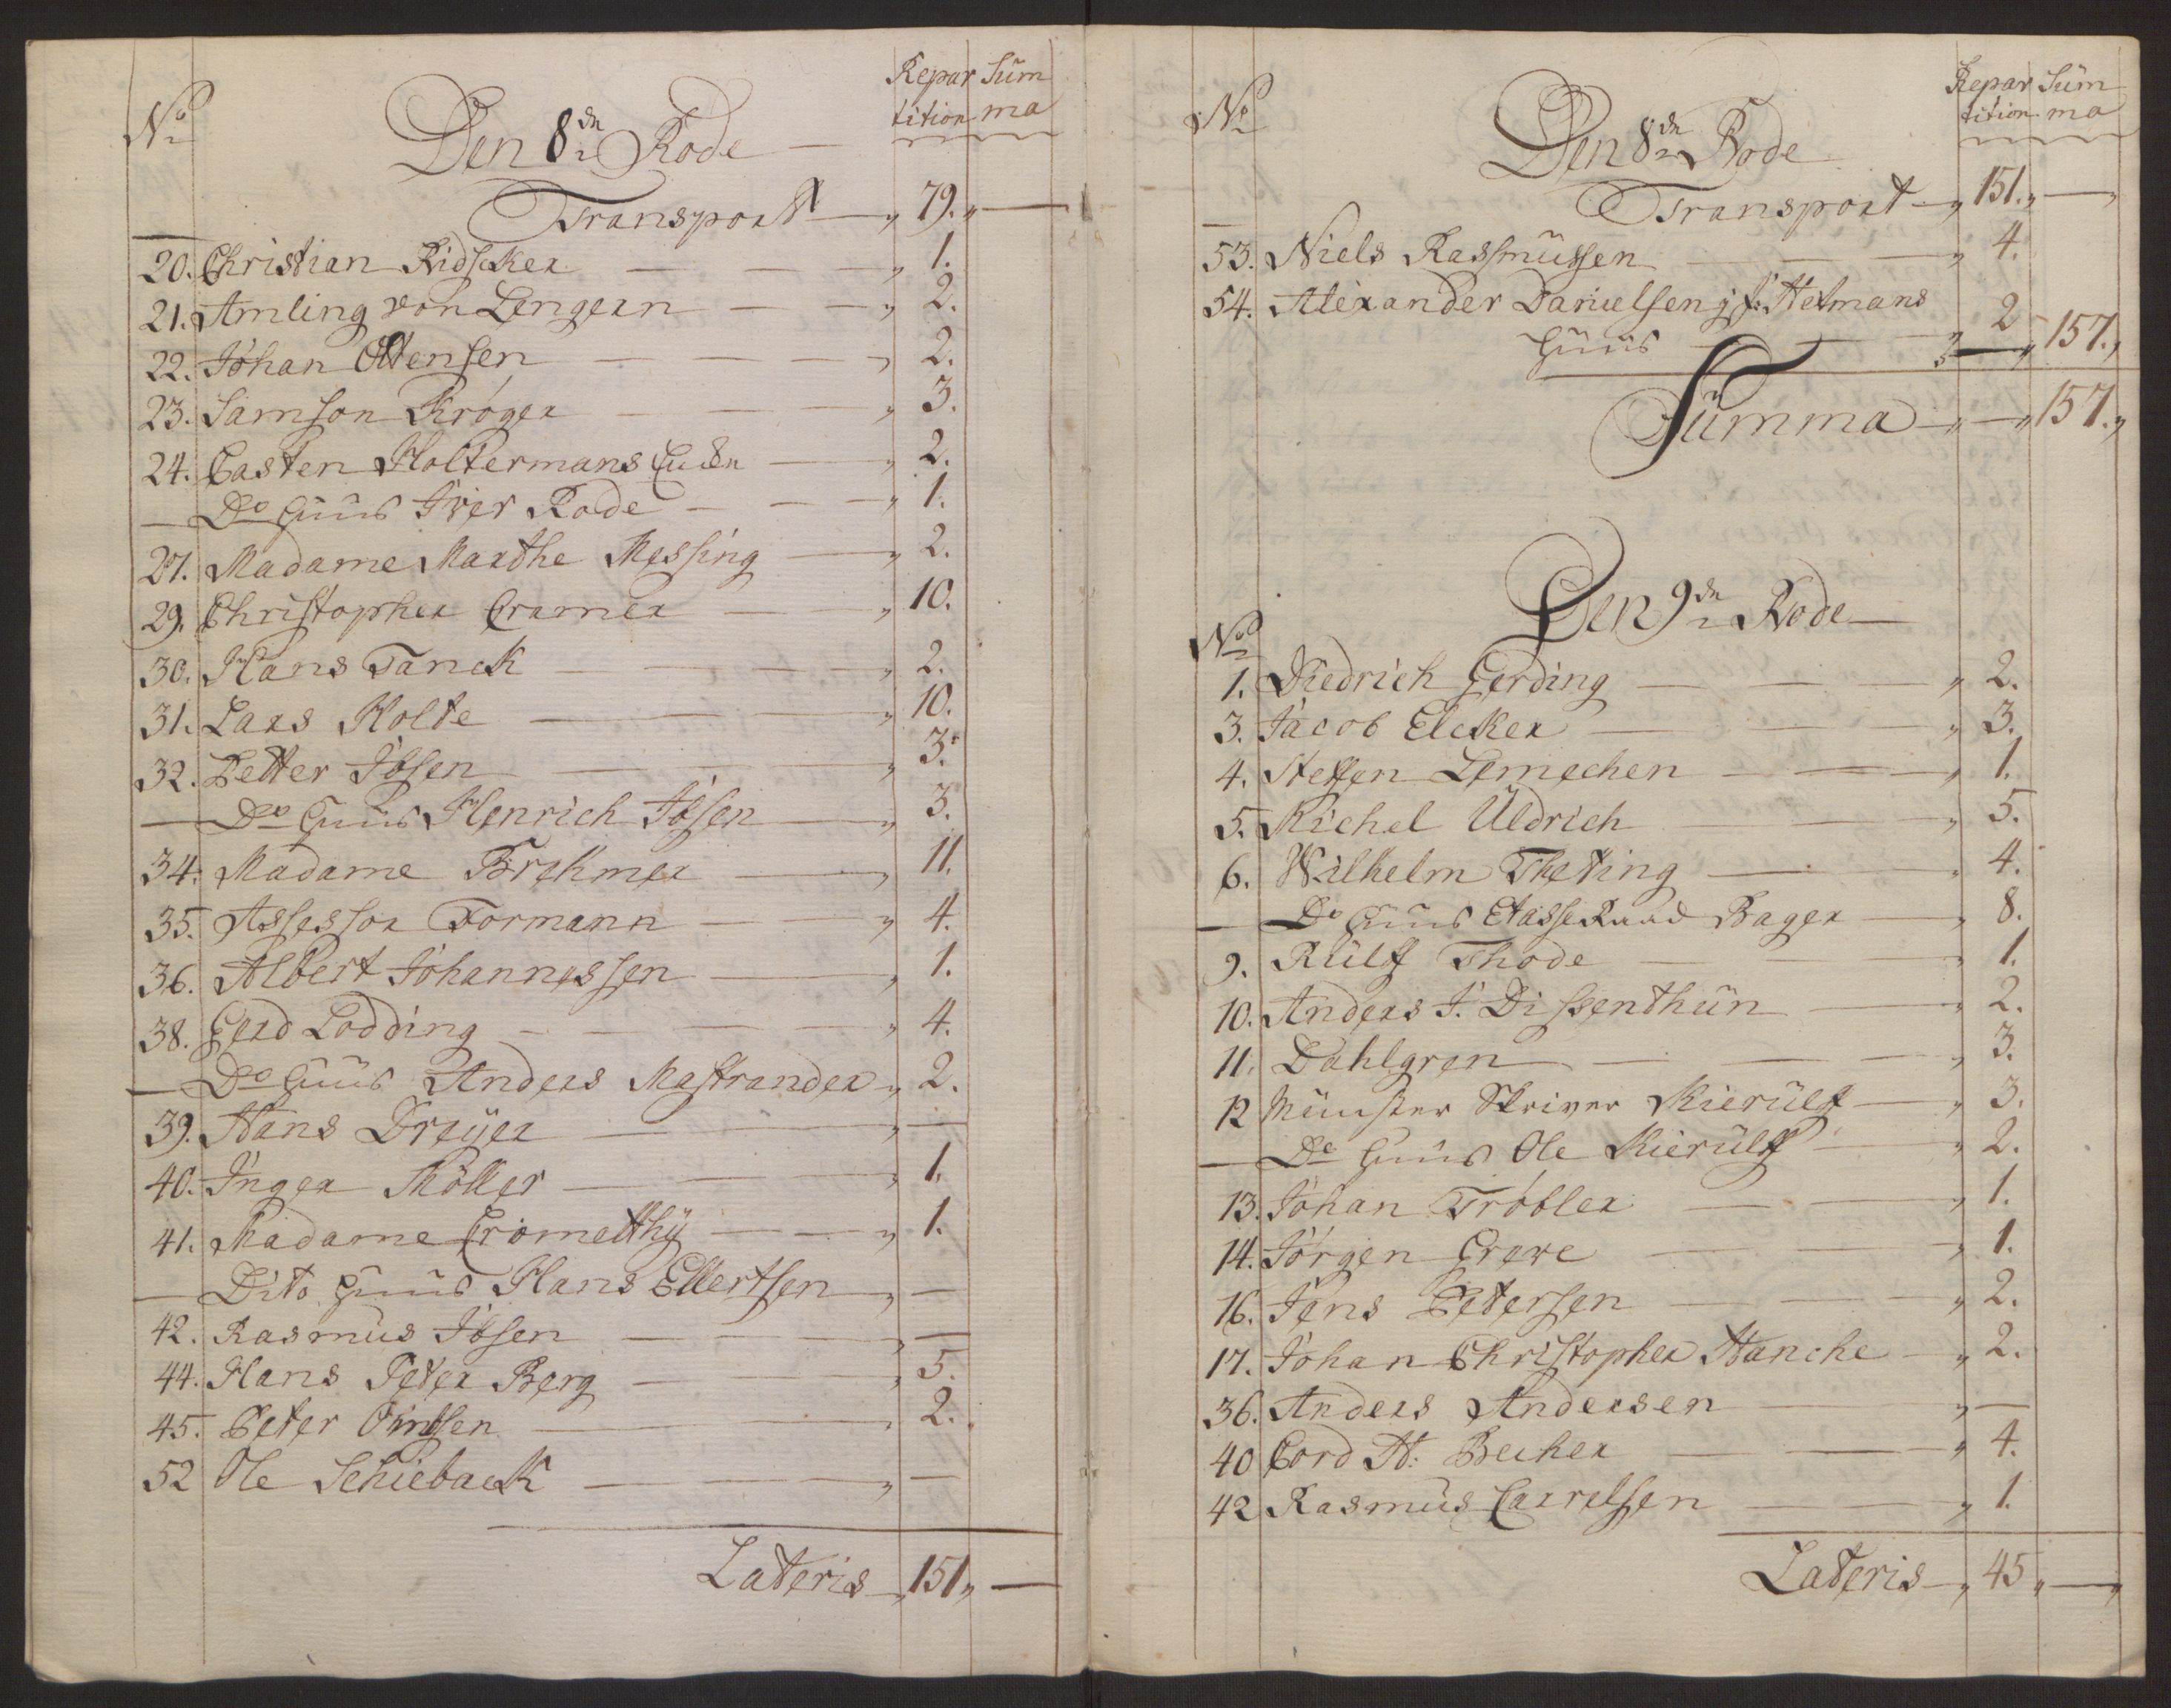 No
Repar Sum
tition ma
Den 8de Rode
Transport 79.
20. Christian Ridscker 1.
21. Amling von Lengern 2.
22. Johan Ottensen 2.
23. Samson Krøger 3.
24. Casten Holtermans Enke 2.
Do Huus Iver Rode 1.
27. Madame Marthe Messing 2.
29. Christopher Cramer 10.
30. Hans Tanck 2.
31. Lars Holte 10.
32. Petter Ibsen 3.
Do Huus Henrich Ibsen 3.
34. Madame Brehmer 11.
35. Assessor Formann 4.
36. Albert Johannessen 1.
38. Gerd Lodding 4.
Do Huus Anders Mastrander 2.
39. Hans Dreyer —
40. Inger Möller 1.
41. Madame Cromethy 1.
Dito Huus Hans Ellertsen —
42. Rasmus Ibsen —
44. Hans Peter Berg 5.
45. Peter 2.
52 Ole Schieback —
Lateris 151
No
Repar Sum
tition ma
Den 8de Rode
Transport 151.
53. Niels Rasmussen 4.
54. Alexander Danielsen j J: Helmans
Huus 2 157.
Summa 157.
Den 9de Rode
No
1. Diedrich Gerding 2.
3. Jacob Elcker 3.
4. Steffen Lemechen 1.
5. Michel Uldrich 5.
6. Wilhelm Theting 4.
Do Huus Etatsse Raad Bager 8.
9. Rülff Thode 1.
10. Anders J. Dissenthun 2.
11. Dahlgren 3.
12 Münster Skriver Kierulff 3.
Do Huus Ole Kierülff 2.
13. Johan Trøbler 1.
14. Jörgen Greve 1.
16. Jens Petersen 2.
17. Johan Christopher Hanche 2.
36. Anders Andersen —
40 Cord H: Becher 4.
42 Rasmus Carrelsen 1.
Lateris 45